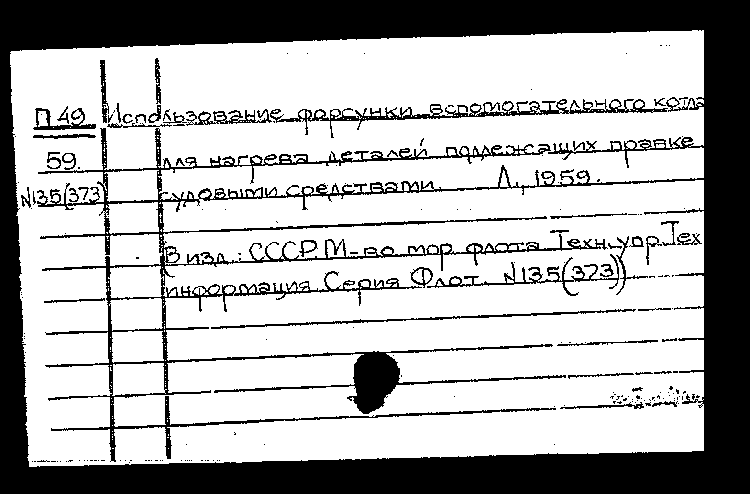 П 49 Использование форсунки вспомогательного котла
59. для нагрева деталей подлежащих правке
N135(373) судовыми средствами. Л., 1959.
В изд.: СССР. М-во мор. флота Техн. упр. Тех
информация Серия Флот. N135(373)